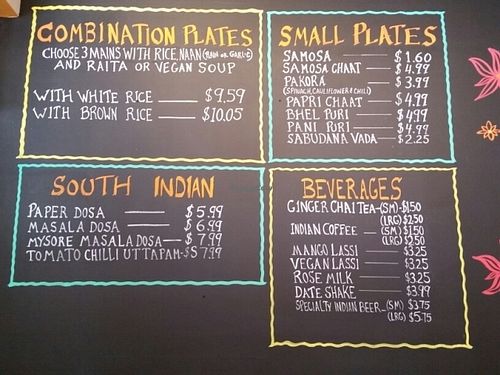 COMBINATION PLATES
CHOOSE 3 MAINS WITH RICE, NAAN (PLAIN OR GARLIC)
AND RAITA OR VEGAN SOUP
WITH WHITE RICE — $9.59
WITH BROWN RICE — $10.05
SMALL PLATES
SAMOSA — $1.60
SAMOSA CHAAT — $4.99
PAKORA — $3.99
(SPINACH, CAULIFLOWER & CHILI)
PAPRI CHAAT — $4.99
BHEL PURI — $4.99
PANI PURI — $4.99
SABUDANA VADA — $2.25
SOUTH INDIAN
PAPER DOSA — $5.99
MASALA DOSA — $6.99
MYSORE MASALA DOSA — $7.99
TOMATO CHILLI UTTAPAM - $7.99
BEVERAGES
GINGER CHAI TEA - (SM) - $1.50
(LRG) $2.50
INDIAN COFFEE — (SM) $1.50
(LRG) $2.50
MANGO LASSI — $3.25
VEGAN LASSI — $3.25
ROSE MILK — $3.25
DATE SHAKE — $3.99
SPECIALTY INDIAN BEER - (SM) $3.75
(LRG) $5.75